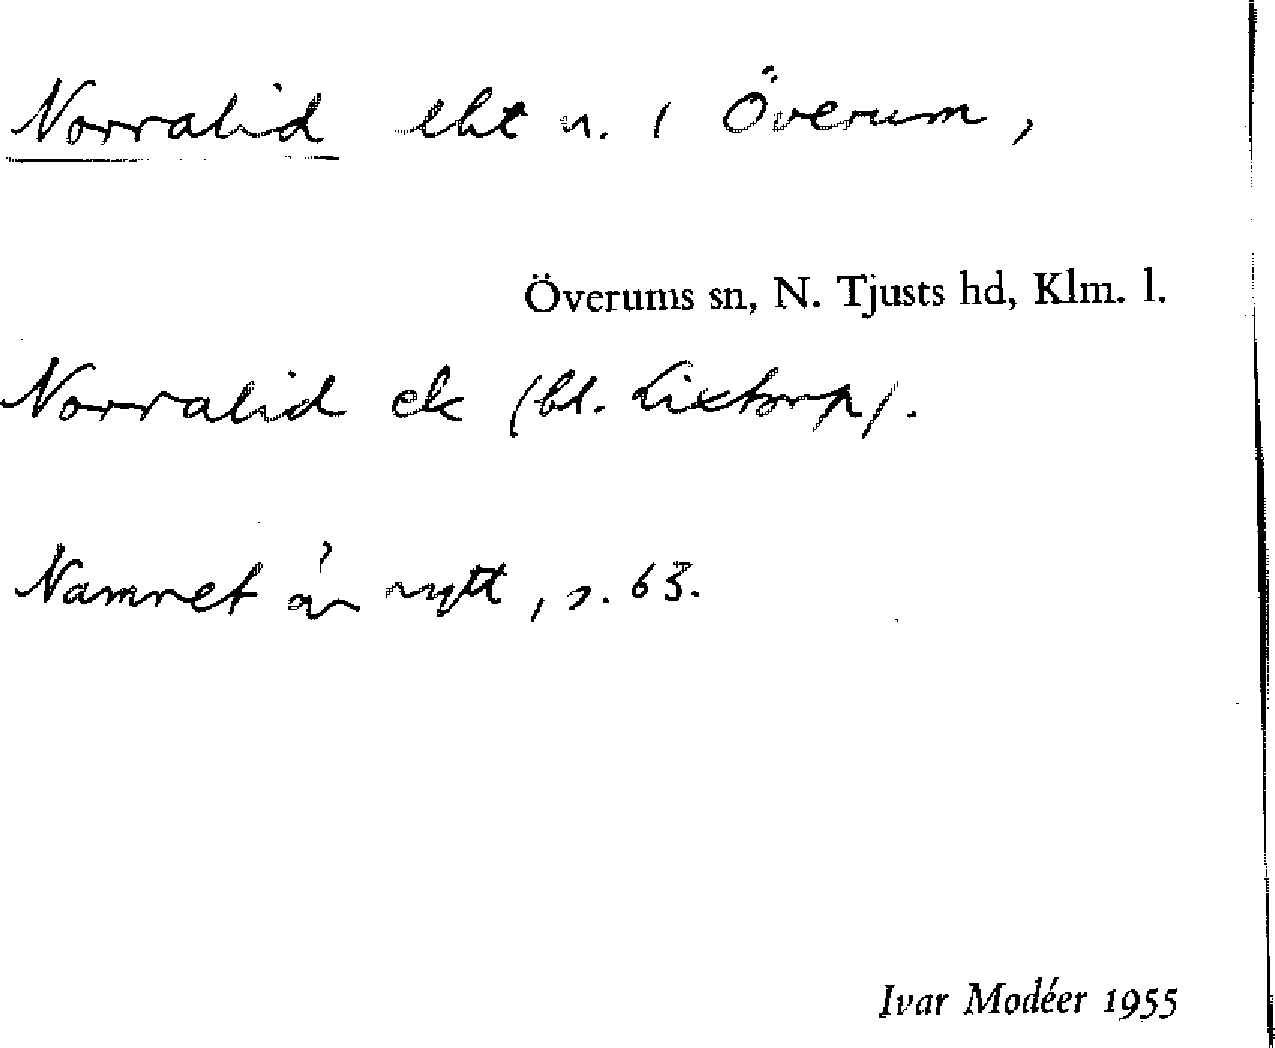 Norralid eht n. 1 Överum,
Överums sn, N. Tjusts hd, Klm. l.
Norralid ek (bl. Lixtorp).
Namnet är nytt, s. 63.
Ivar Modéer 1955